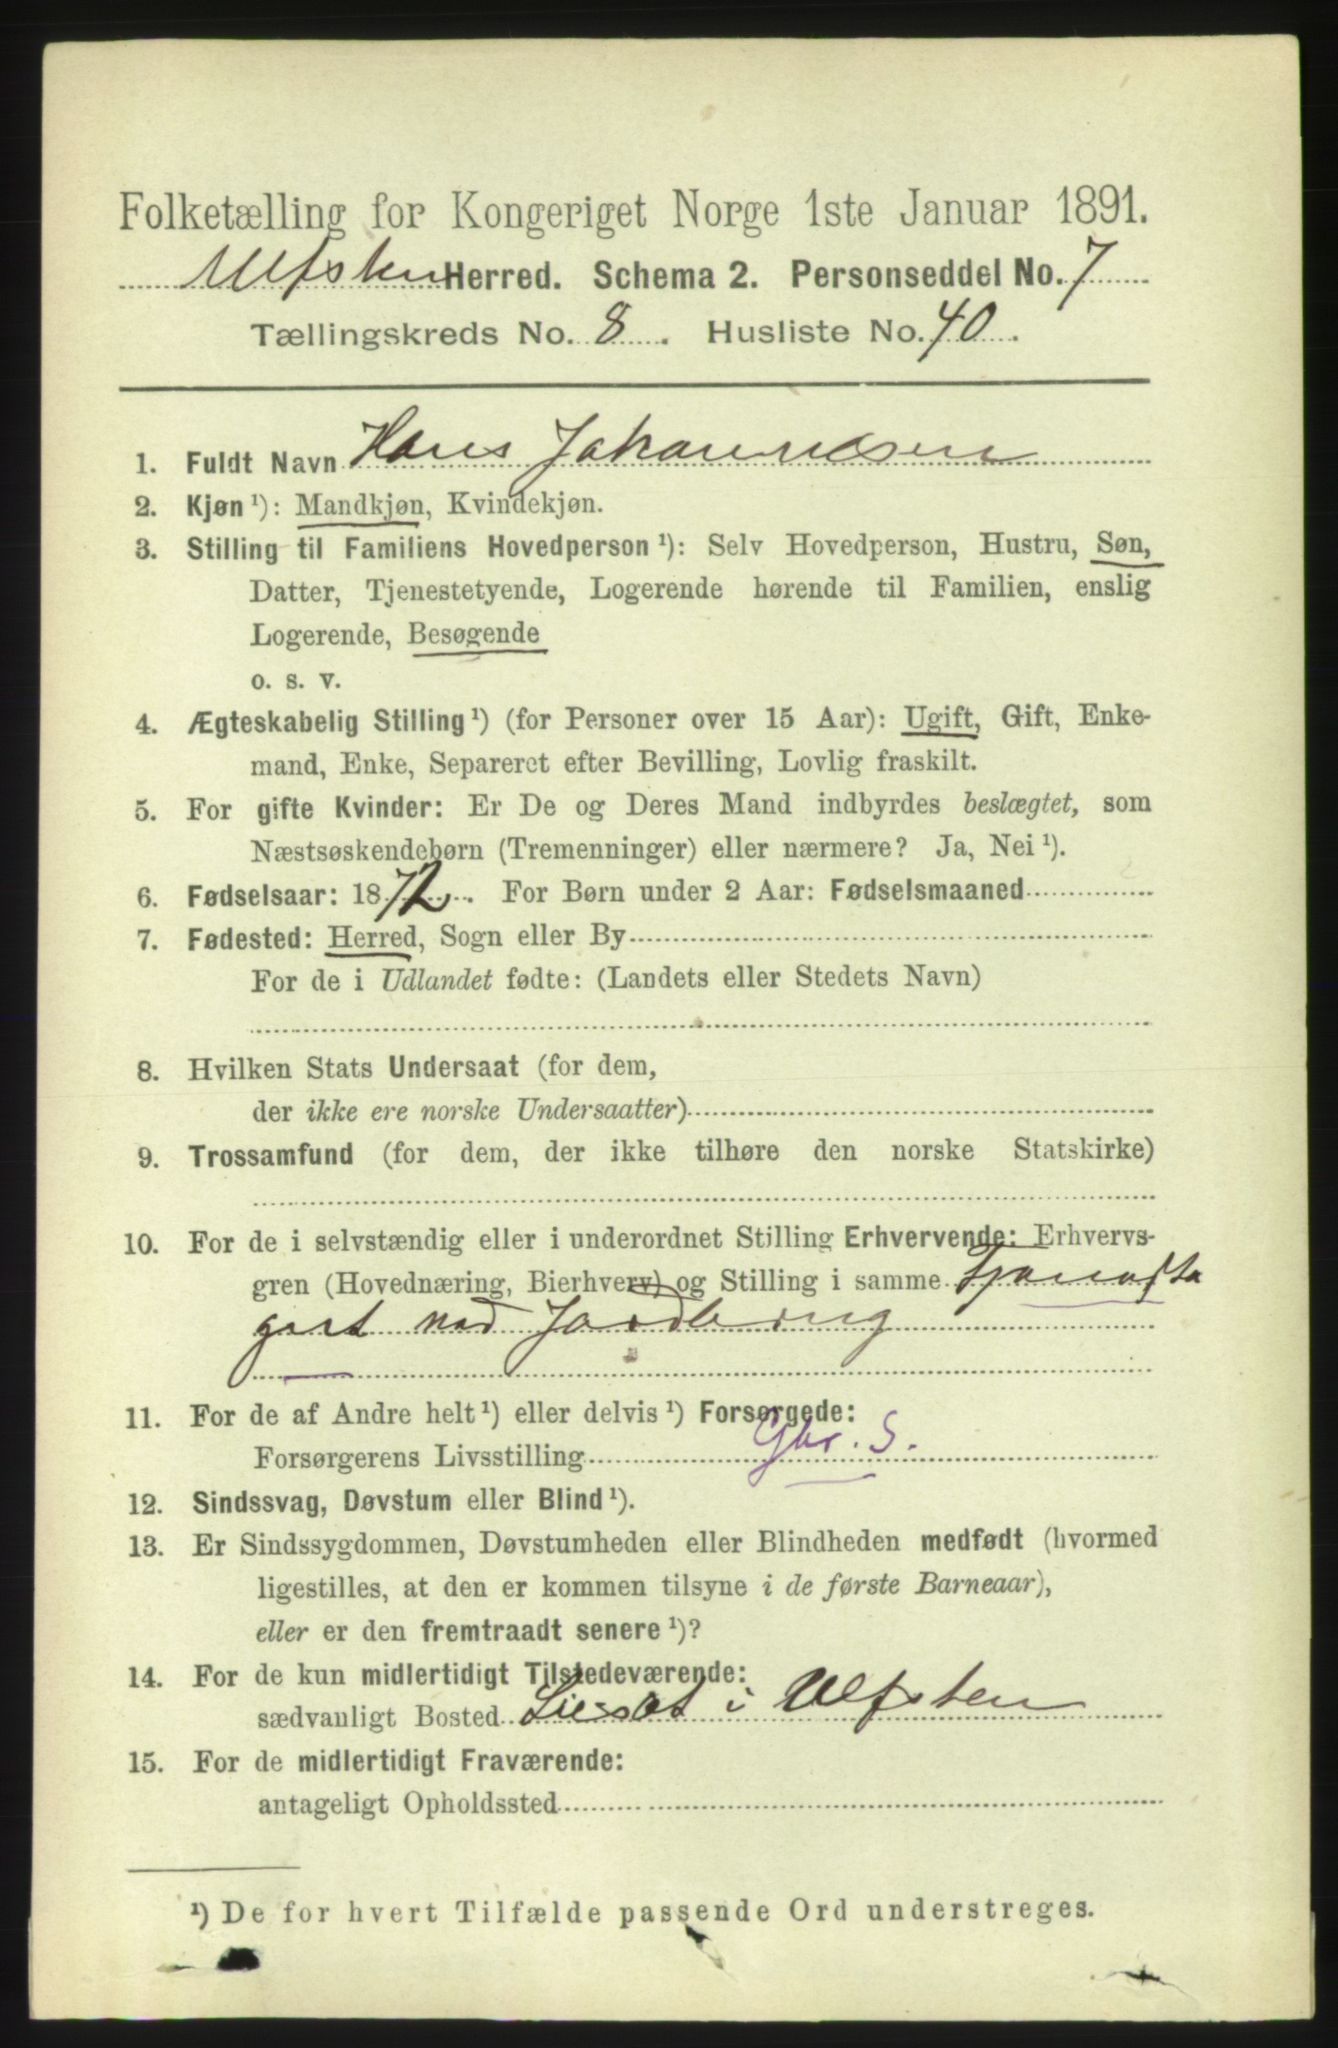 Folketælling for Kongeriget Norge 1ste Januar 1891.
Ulfsten Herred. Schema 2. Personseddel No. 7
Tællingskreds No. 8. Husliste No. 40.
1. Fuldt Navn Hans Johannesen
2. Kjøn ¹): Mandkjøn, Kvindekjøn.
3. Stilling til Familiens Hovedperson ¹): Selv Hovedperson, Hustru, Søn,
Datter, Tjenestetyende, Logerende hørende til Familien, enslig
Logerende, Besøgende
o. s. v.
4. Ægteskabelig Stilling ¹) (for Personer over 15 Aar): Ugift, Gift, Enke-
mand, Enke, Separeret efter Bevilling, Lovlig fraskilt.
5. For gifte Kvinder: Er De og Deres Mand indbyrdes beslægtet, som
Næstsøskendebørn (Tremenninger) eller nærmere? Ja, Nei ¹).
6. Fødselsaar: 1872. For Børn under 2 Aar: Fødselsmaaned
7. Fødested: Herred, Sogn eller By
For de i Udlandet fødte: (Landets eller Stedets Navn)
8. Hvilken Stats Undersaat (for dem,
der ikke ere norske Undersaatter)
9. Trossamfund (for dem, der ikke tilhøre den norske Statskirke)
10. For de i selvstændig eller i underordnet Stilling Erhvervende: Erhvervs-
gren (Hovednæring, Bierhverv) og Stilling i samme
11. For de af Andre helt ¹) eller delvis ¹) Forsørgede:
Forsørgerens Livsstilling Gbr. S.
12. Sindssvag, Døvstum eller Blind ¹).
13. Er Sindssygdommen, Døvstumheden eller Blindheden medfødt (hvormed
ligestilles, at den er kommen tilsyne i de første Barneaar),
eller er den fremtraadt senere ¹)?
14. For de kun midlertidigt Tilstedeværende:
sædvanligt Bosted Liesæt i Ulfsten
15. For de midlertidigt Fraværende:
antageligt Opholdssted
¹) De for hvert Tilfælde passende Ord understreges.